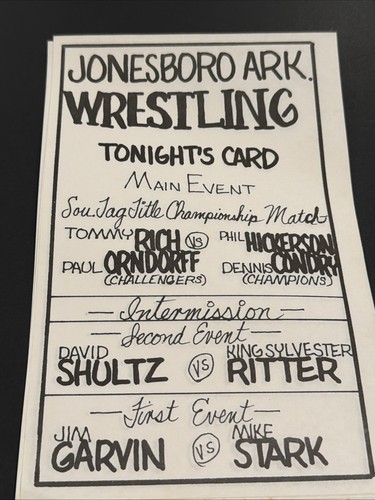 JONESBORO ARK.
WRESTLING
TONIGHT'S CARD
MAIN EVENT
Sou. Tag Title Championship Match
TOMMY RICH VS PHIL HICKERSON
PAUL ORNDORFF DENNIS CONDRY
(CHALLENGERS) (CHAMPIONS)
— Intermission —
— Second Event —
DAVID KING SYLVESTER
SHULTZ VS RITTER
— First Event —
JIM MIKE
GARVIN VS STARK